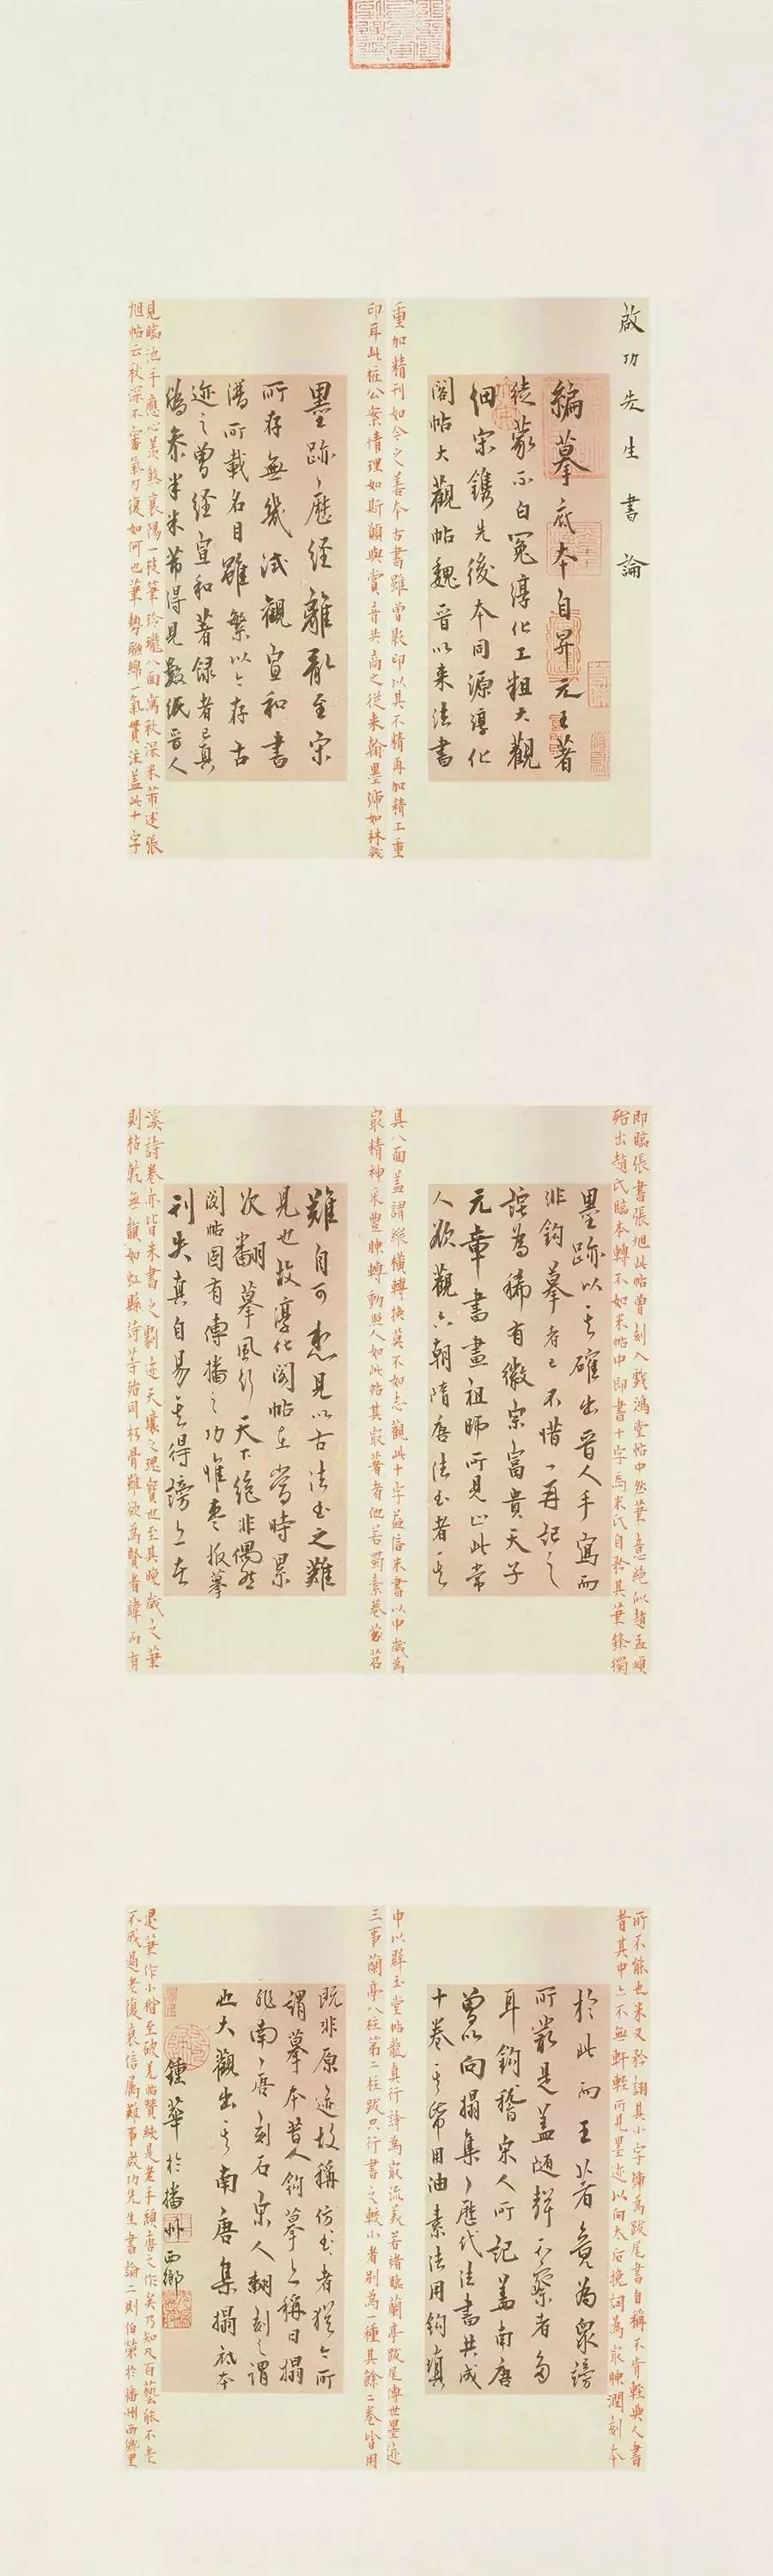 啟功先生書論
編摹底本自昇元王著
徒蒙不白冤淳化工粗大觀
細宋鐫先後本同源淳化
閣帖大觀帖魏晉以来法書
墨跡、歷經離亂至宋
所存無幾試觀宣和書
譜所載名目雖繁以今存古
迹之曾經宣和著録者已真
偽参半米芾得見數紙晉人
重加精刊如今之善本古書雖曾影印以其不精再加精工重
印耳此樁公案情理如斯願與賞音共商之從来翰墨號如林幾
見臨池手應心羡煞襄陽一枝筆玲瓏八面寫秋深米芾述張
旭帖云秋深不審氣力復如何也筆勢聯綿一氣貫注蓋此十字
墨跡以其確出晉人手寫而
非鈎摹者已不惜一再記之
詫為稀有徽宗富貴天子
元章書畫祖師所見止此常
人欲觀六朝隋唐法書者其
難自可想見以古法書之難
見也故淳化閣帖在當時累
次翻摹風行天下絶非偶然
閣帖固有傳播之功惟棗板摹
刊失真自易其得謗亦在
即臨張書張旭此帖曾刻入戲鴻堂帖中然筆意絶似趙孟頫
殆出趙氏臨本轉不如米帖中即書十字為米氏自矜其筆鋒獨
具八面蓋謂縱橫轉换莫不如志觀此十字益信米書以中歲為
最精神采豐腴轉動照人如此帖其最著者他若蜀素卷苕
溪詩卷亦皆米書之劇迹天壤之瑰寶也至其晚歲之筆
則枯乾無韻如虹縣詩等殆同朽骨雖欲為賢者諱而有
於此而王著竟為衆謗
所叢是蓋随聲不察者多
耳鈎稽宋人所記蓋南唐
曾以向搨集、歷代法書共成
十卷其帋用油素法用鈎填
既非原迹故稱仿書者猶今所
謂摹本昔人鈎摹亦稱曰搨
非南唐刻石宋人翻刻之謂
也大觀出其南唐集搨底本
鍾華於播州西鄉
所不能也米又矜詡其小字嘗為跋尾書自稱不肯輕與人書
昔其中亦不無軒輊所見墨迹以向太后挽詞為最腴潤刻本
中以群玉堂帖龍真行詩為最流美若諸臨蘭亭跋尾傳世墨迹
三事蘭亭八柱第二柱跋只行書之較小者别為一種其餘二卷皆用
退筆作小楷至破羌帖贊纔是老手頹唐之作矣乃知凡百藝能不老
不成過老復衰信屬難事啟功先生書論二則伯榮於播州西鄉里